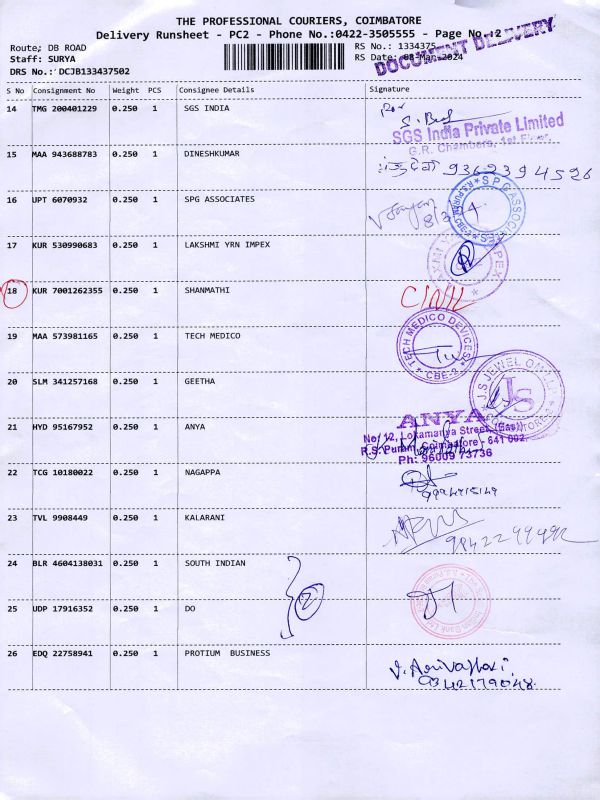 THE PROFESSIONAL COURIERS, COIMBATORE
Delivery Runsheet - PC2 - Phone No.:0422-3505555 - Page No.:2
Route: DB ROAD
RS No.: 1334375
Staff: SURYA
RS Date: 08-Mar-2024
DRS No.: DCJB133437502
DOCUMENT DELIVERY
S No Consignment No Weight PCS Consignee Details Signature
14 TMG 200401229 0.250 1 SGS INDIA
SGS India Private Limited
G.R. Chambers, 1st Floor,
15 MAA 943688783 0.250 1 DINESHKUMAR
9362394526
16 UPT 6070932 0.250 1 SPG ASSOCIATES
8/3/24
SPG ASSOCIATES
17 KUR 530990683 0.250 1 LAKSHMI YRN IMPEX
18 KUR 7001262355 0.250 1 SHANMATHI
19 MAA 573981165 0.250 1 TECH MEDICO
TECH MEDICO DEVICES
CBE-2
20 SLM 341257168 0.250 1 GEETHA
JS
21 HYD 95167952 0.250 1 ANYA
ANYA
No: 12, Lokamanya Street, (East)
R.S. Puram, Coimbatore - 641 002.
Ph: 96009 73736
22 TCG 10180022 0.250 1 NAGAPPA
23 TVL 9908449 0.250 1 KALARANI
24 BLR 4604138031 0.250 1 SOUTH INDIAN
2
25 UDP 17916352 0.250 1 DO
26 EDQ 22758941 0.250 1 PROTIUM BUSINESS
9342179048